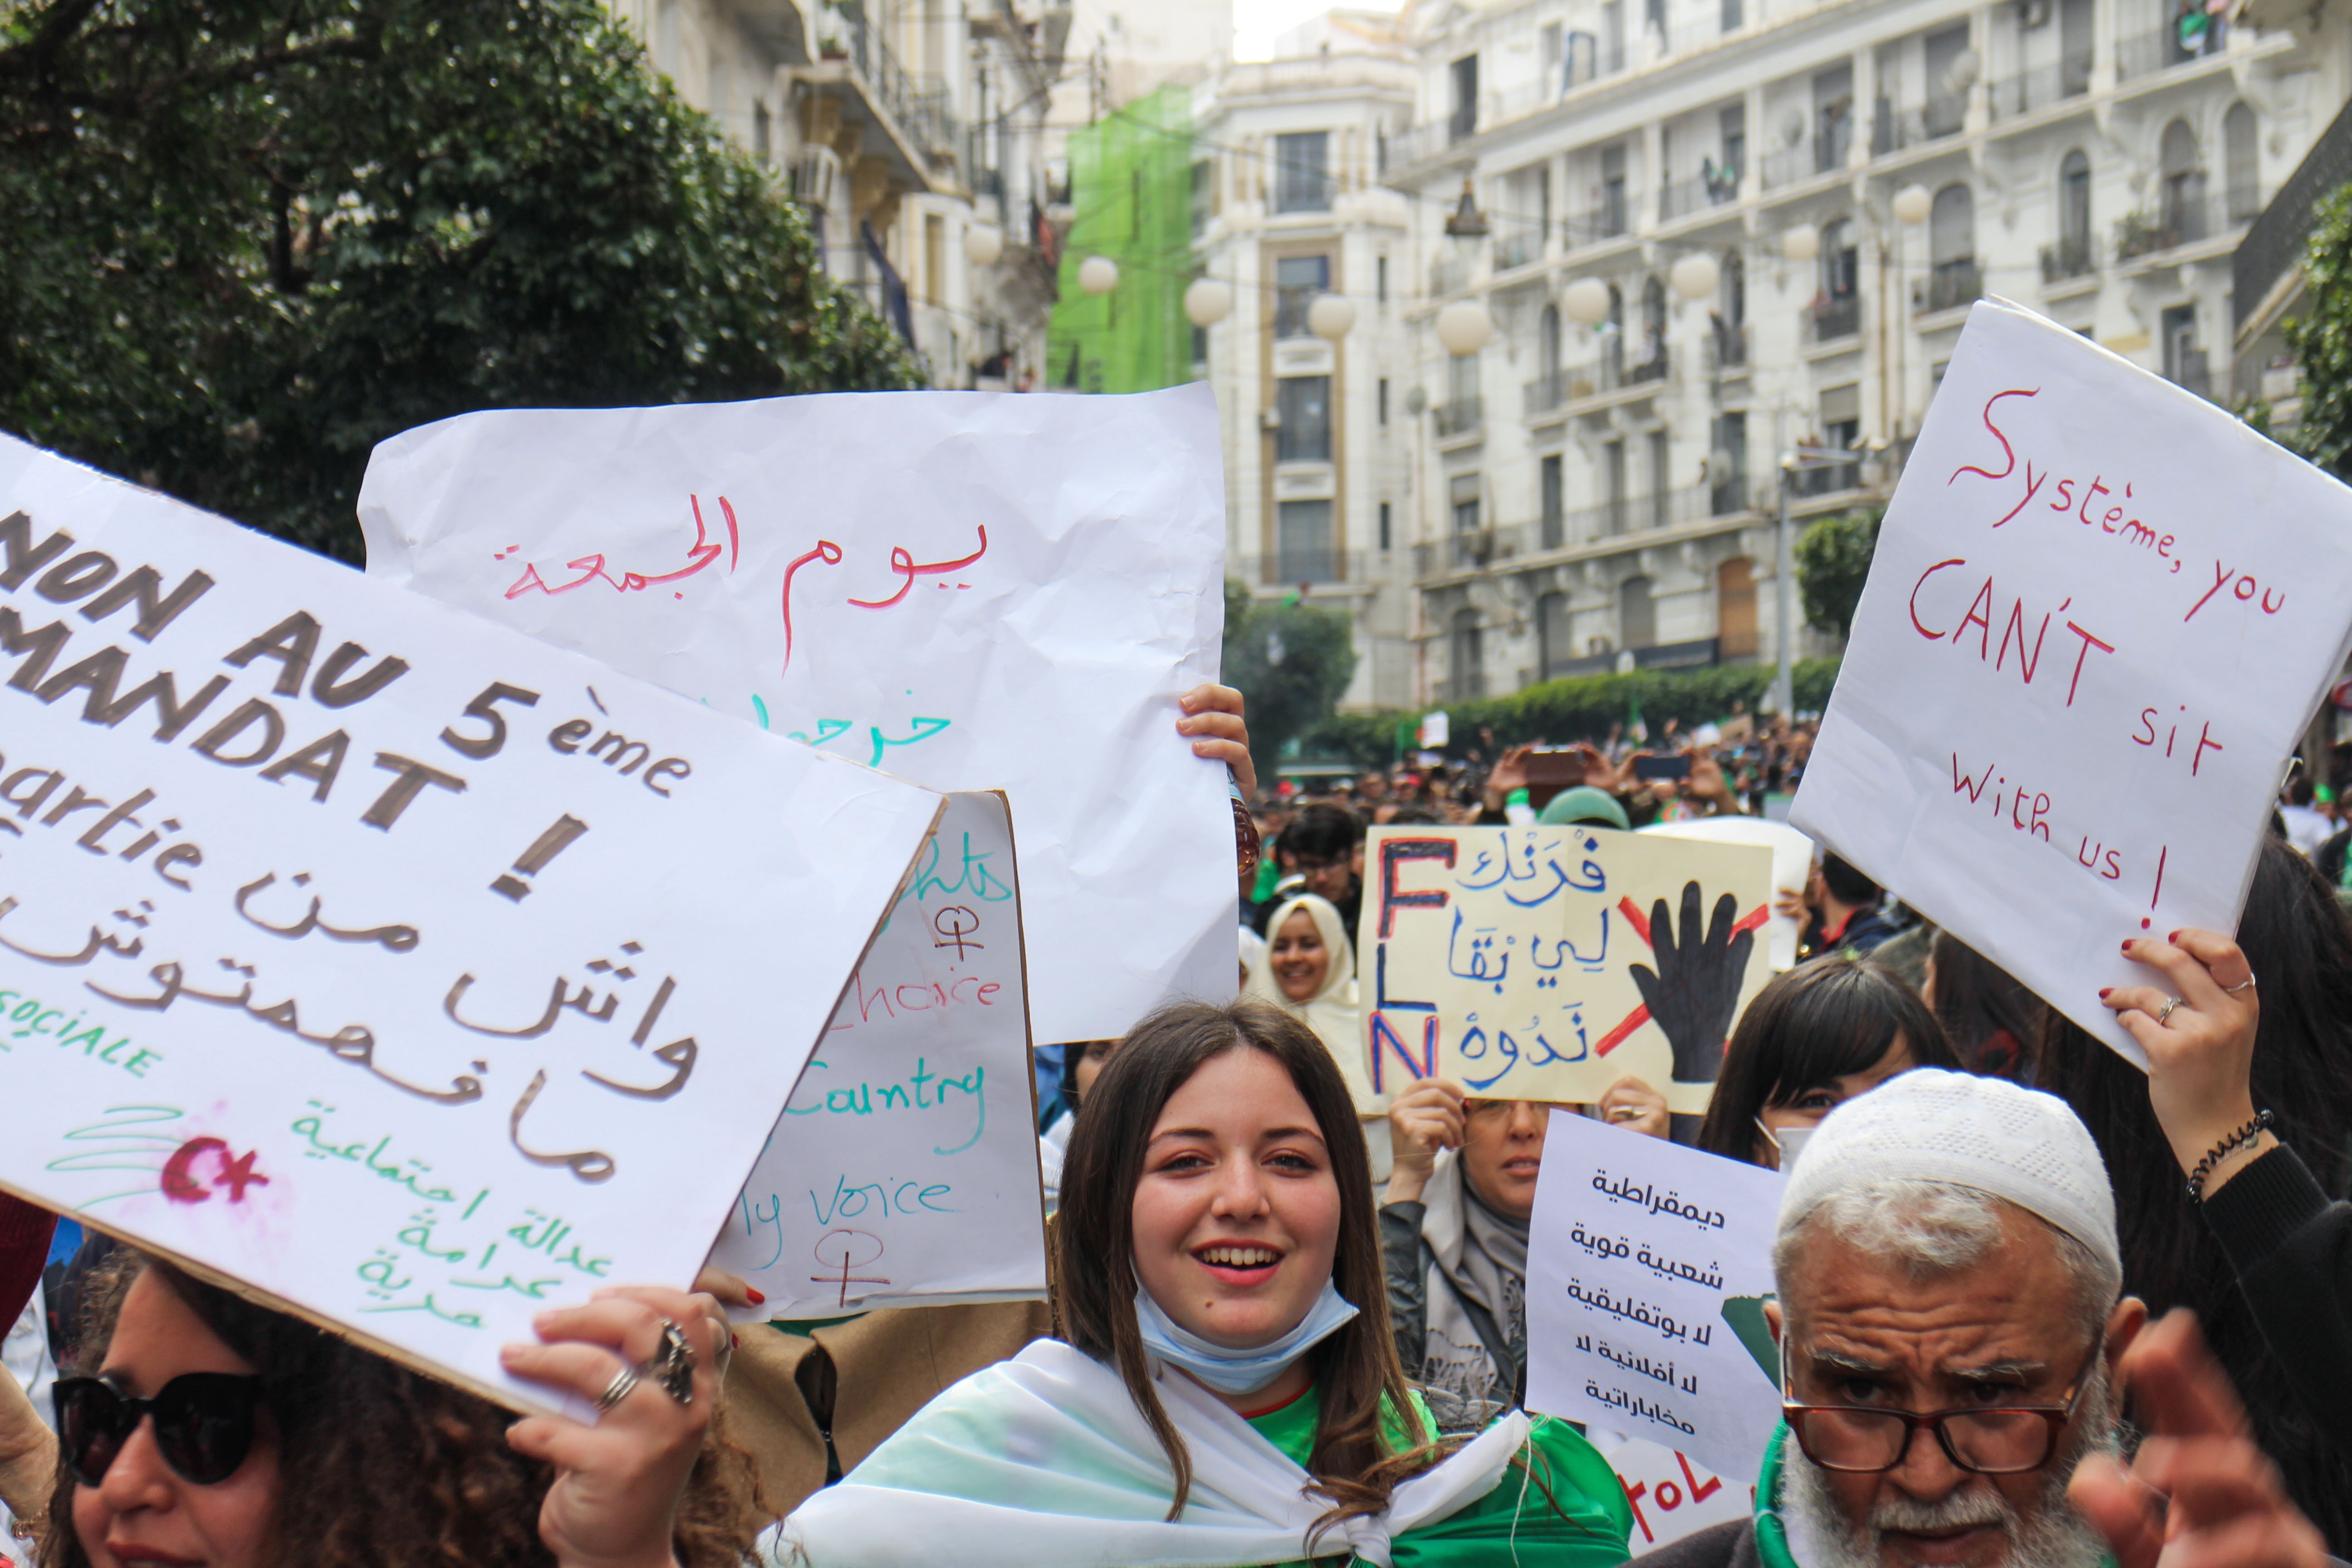 NON AU 5ème
MANDAT !
partie من واش
ما فهمتوش
SOCIALE
عدالة اجتماعية
يوم الجمعة
choice
Country
voice
FLN
فْرَنْك
لِي بْقَا
نَدُوهْ
Système, you
CAN'T sit
with us !
ديمقراطية
شعبية قوية
لا بوتفليقية
لا أفلانية لا
مخاباراتية